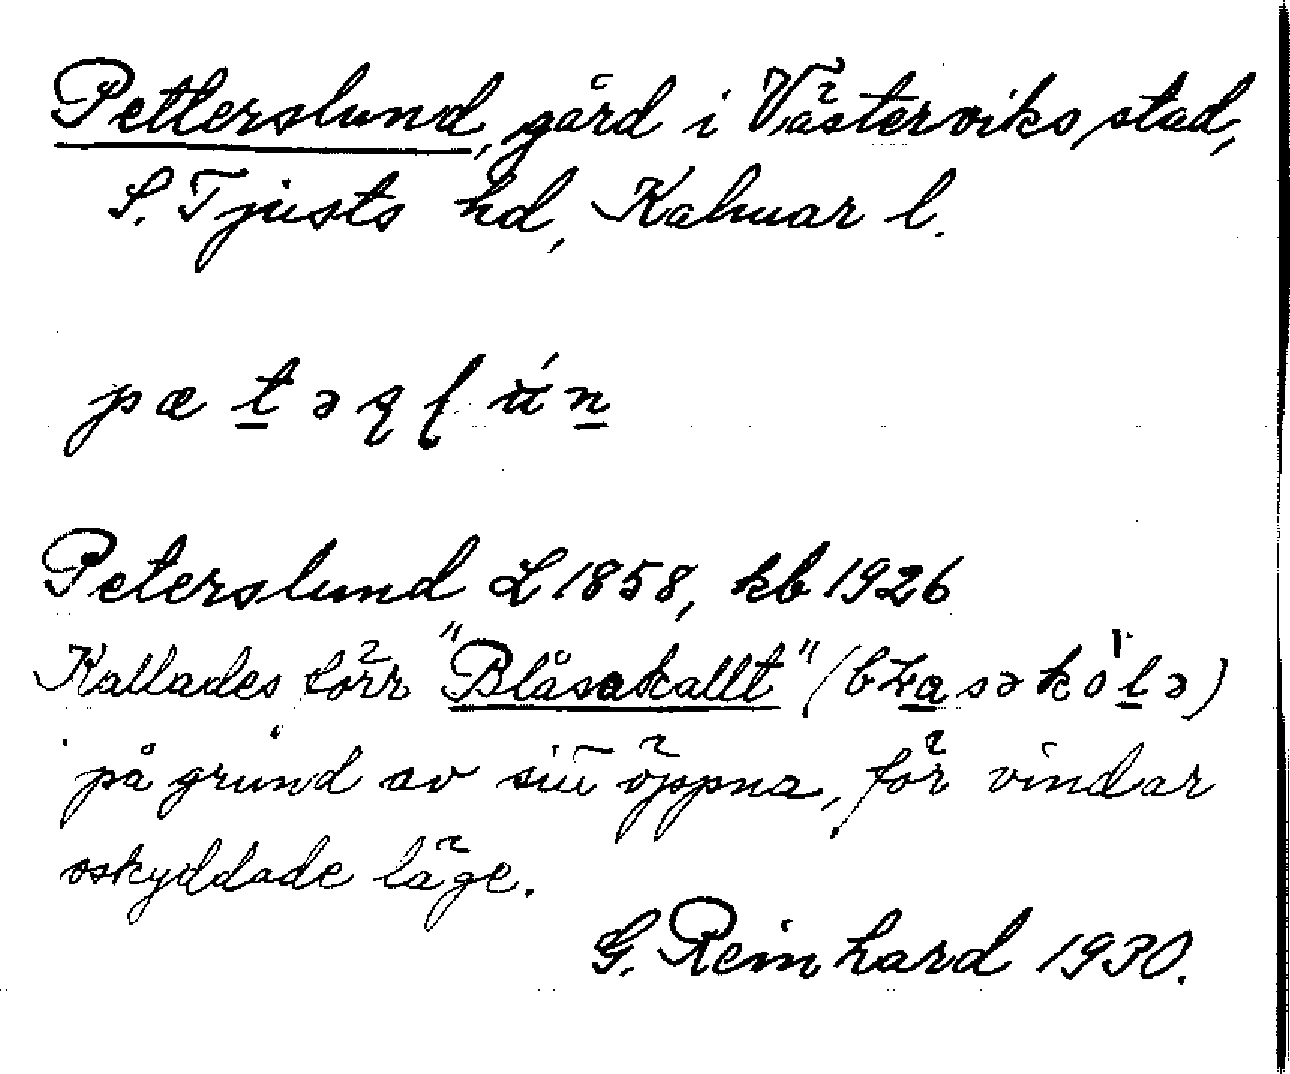 Petterslund, gård i Västerviks stad,
S. Tjusts hd, Kalmar l.
Peterslund L 1858, kb 1926
Kallades förr "Blåsakallt"
på grund av sitt öppna, för vindar
oskyddade läge.
G. Reinhard 1930.